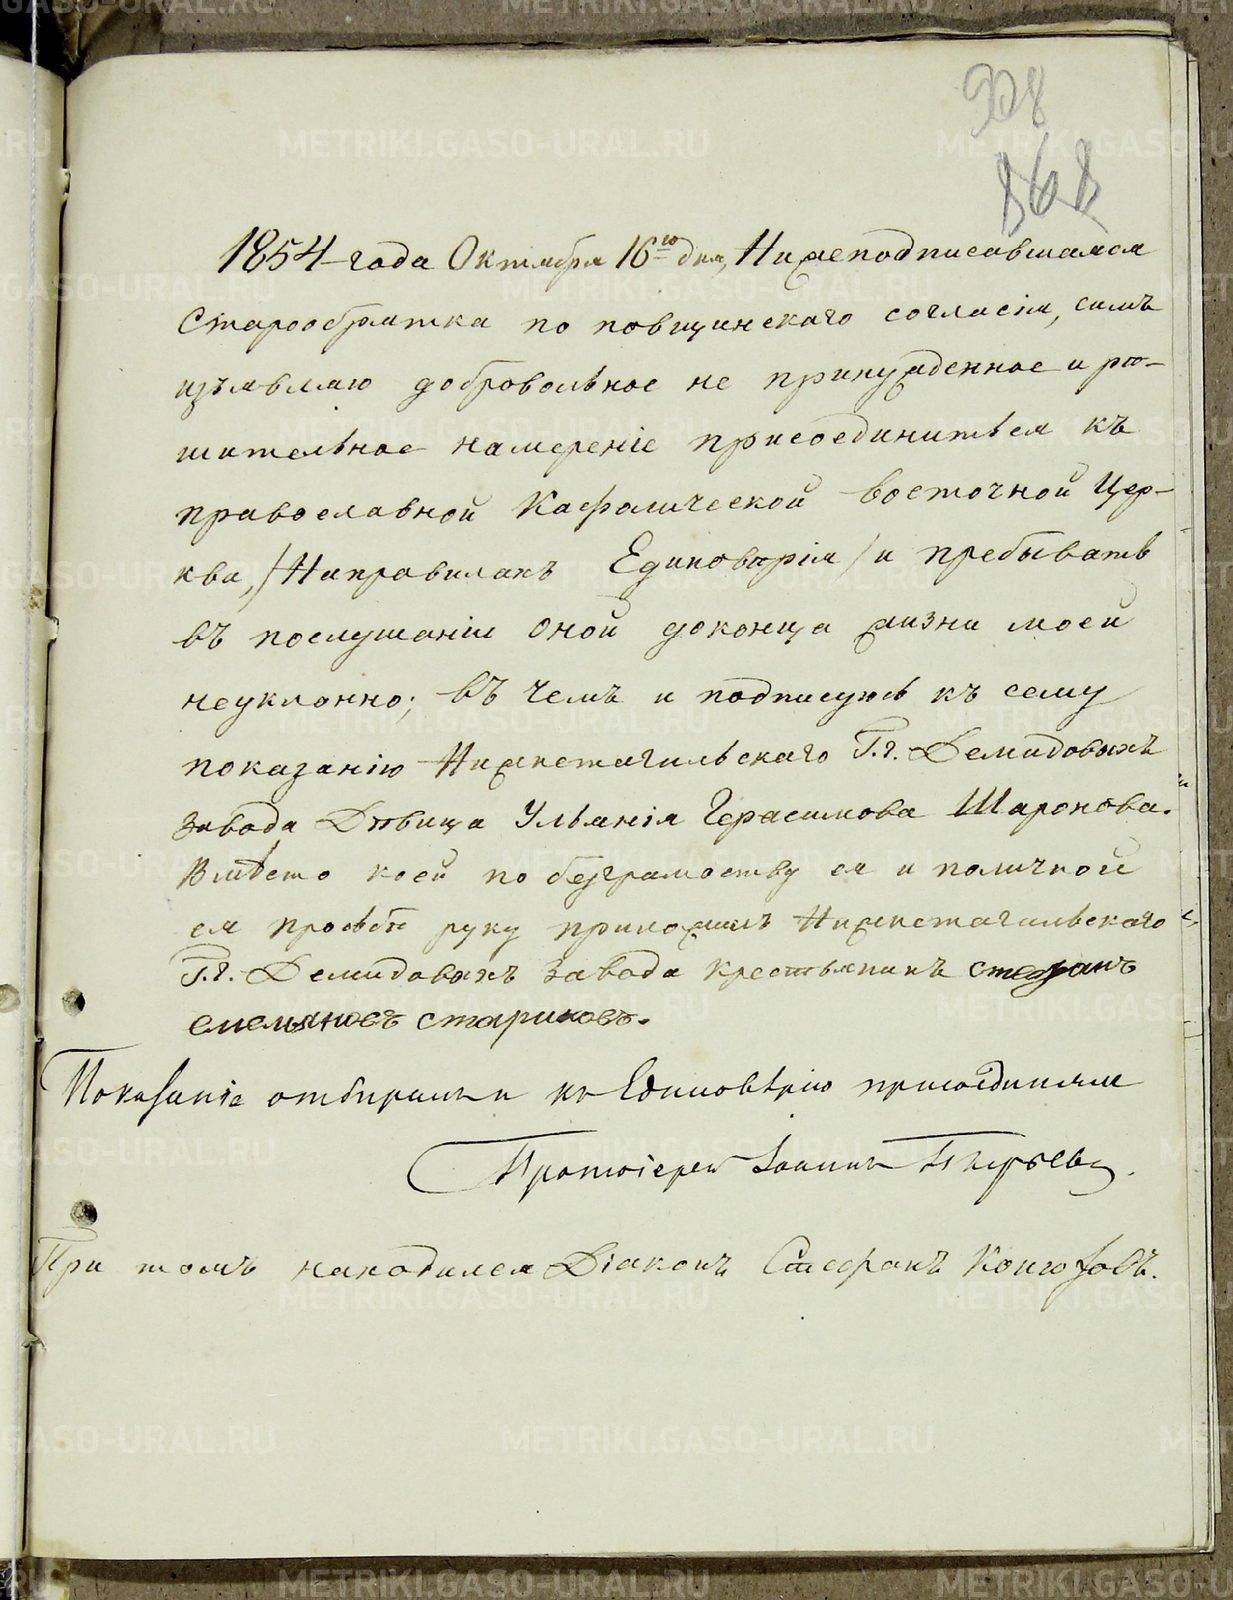 328
868
1854 года Октября 16го дня, Нижеподписавшаяся
Старообрятка по повщинскаго согласія, симъ
изъявляю добровольное не принужденное и рѣ-
шительное намереніе присоединиться къ
православной Кафолической восточной Цер-
кви, /На правилахъ Единоверія/ и пребывать
въ послушаніи оной доконца жизни моей
неуклонно; въ чемъ и подписуюсь къ сему
показанію Нижнетагильскаго Г.г. Демидовыхъ
завода Дѣвица Ульянія Герасимова Шаронова.
Вмѣсто коей по безграмоству ея и поличной
ея прозьбѣ руку приложилъ Нижнетагильскаго
Г.г. Демидовыхъ завода крестьянинъ стефанъ
емельяновъ стариковъ.
Показаніе отбиралъ и къ Единовѣрію присоединялъ
Протоіерей Іоаннъ
При томъ находился Діаконъ Стефанъ
METRIKI.GASO-URAL.RU